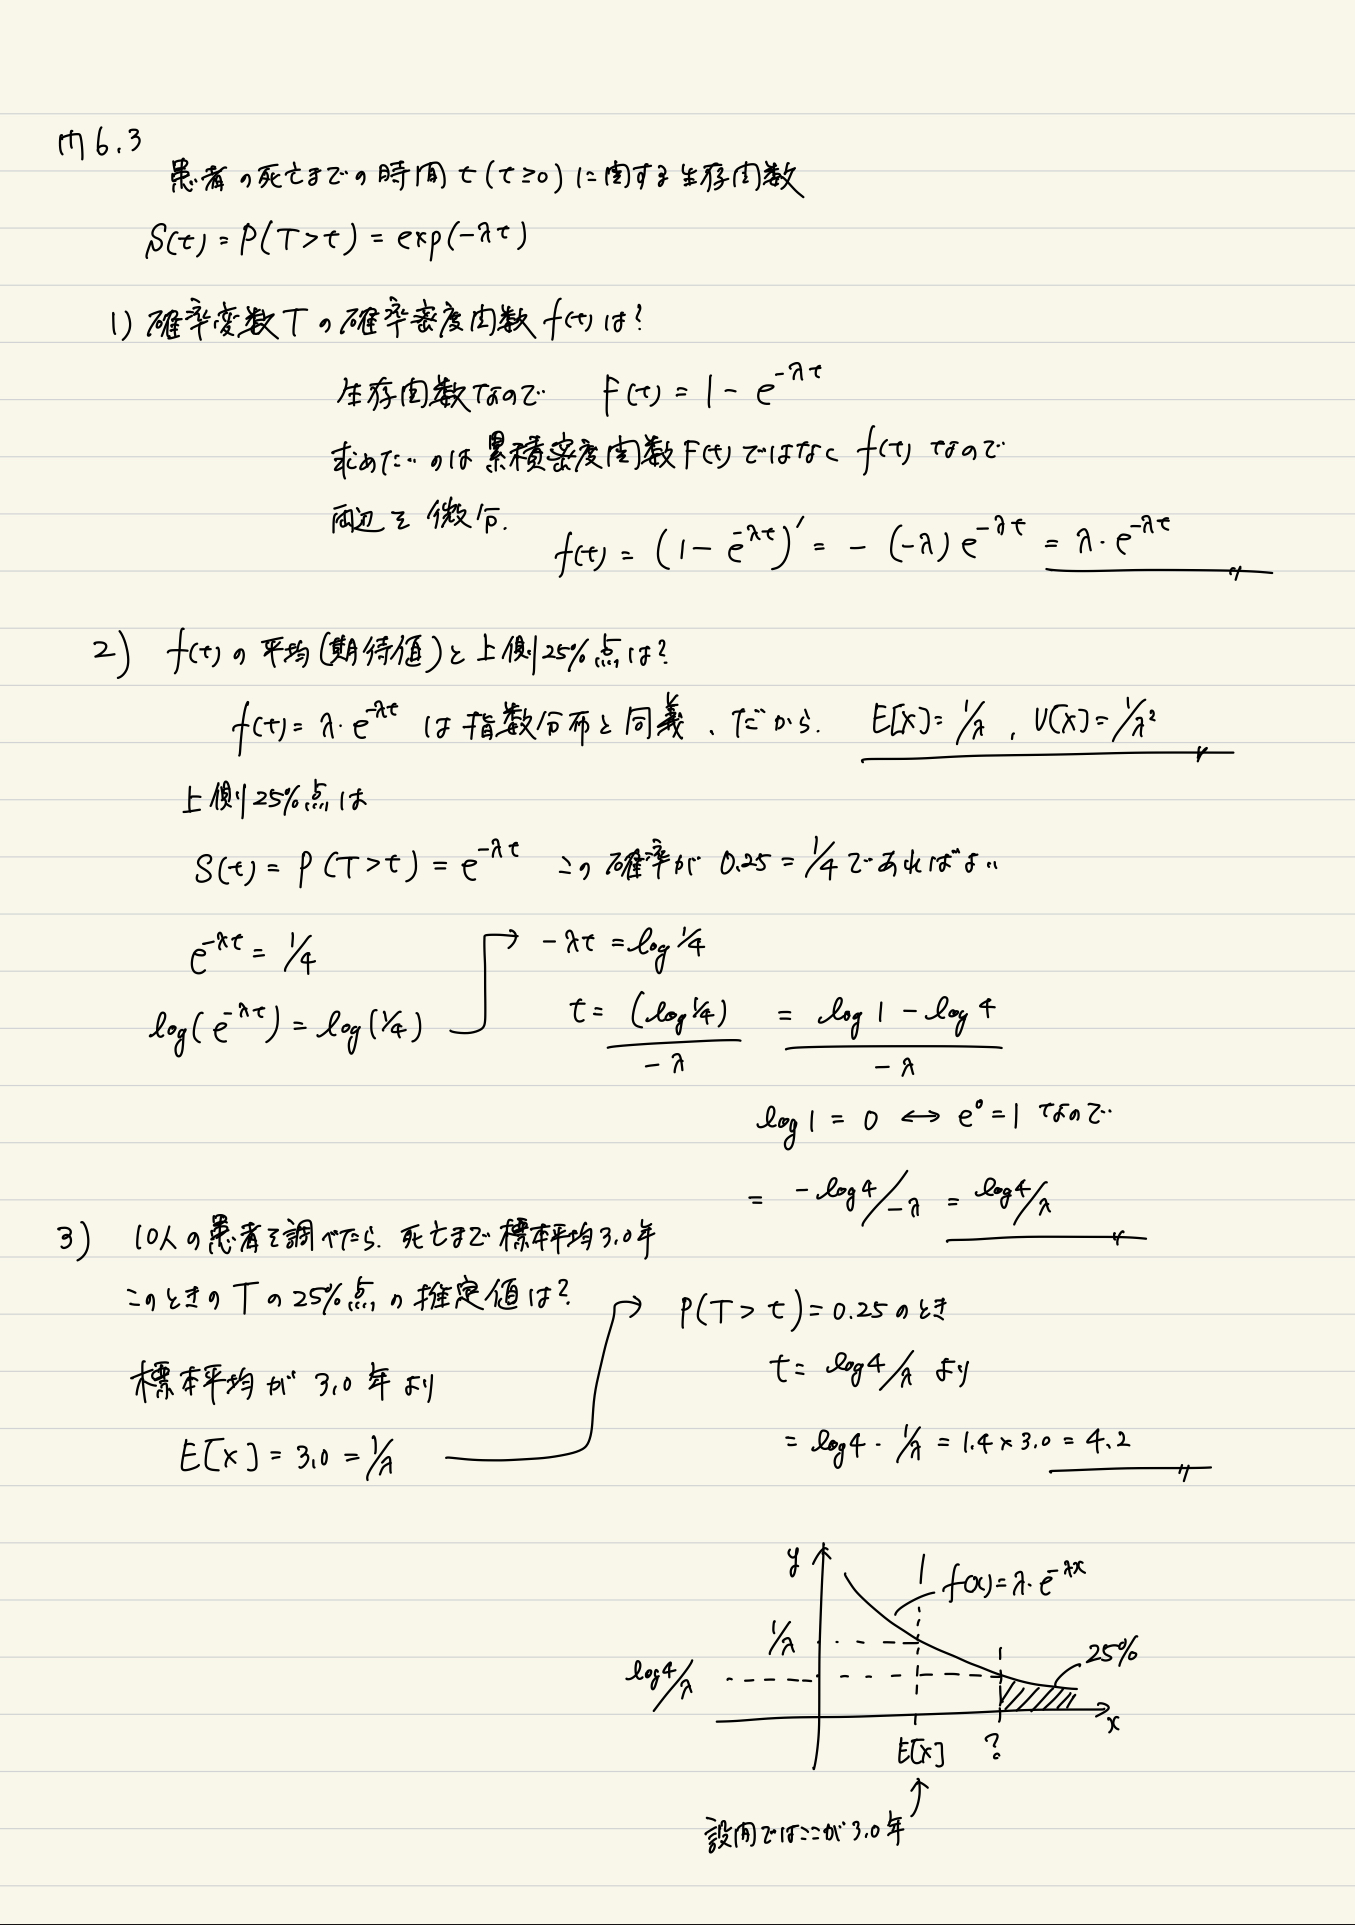 問6.3
患者の死亡までの時間 t (t≥0) に関する生存関数
S(t) = P(T>t) = exp(-λt)
1) 確率変数Tの確率密度関数 f(t) は?
生存関数なので F(t) = 1 - e^{-λt}
求めたいのは累積密度関数F(t)ではなく f(t) なので
両辺を微分.
f(t) = (1 - e^{-λt})' = - (-λ) e^{-λt} = λ・e^{-λt}
2) f(t) の平均(期待値)と上側25%点は?
f(t) = λ・e^{-λt} は指数分布と同義、だから. E[X] = 1/λ , V[X] = 1/λ²
上側25%点は
S(t) = P(T>t) = e^{-λt} この確率が 0.25 = 1/4 であればよい
e^{-λt} = 1/4
log(e^{-λt}) = log(1/4)
→ -λt = log 1/4
t = (log 1/4) / -λ = log 1 - log 4 / -λ
log 1 = 0 ↔ e⁰ = 1 なので
= -log4/-λ = log4/λ
3) 10人の患者を調べたら. 死亡まで標本平均3.0年
このときのTの25%点の推定値は?
標本平均が 3.0年より
E[X] = 3.0 = 1/λ
→ P(T>t) = 0.25 のとき
t = log4/λ より
= log4・1/λ = 1.4×3.0 = 4.2
y
f(x) = λ・e^{-λx}
1/λ
log4/λ
25%
x
E[X] ?
↑
設問ではここが3.0年